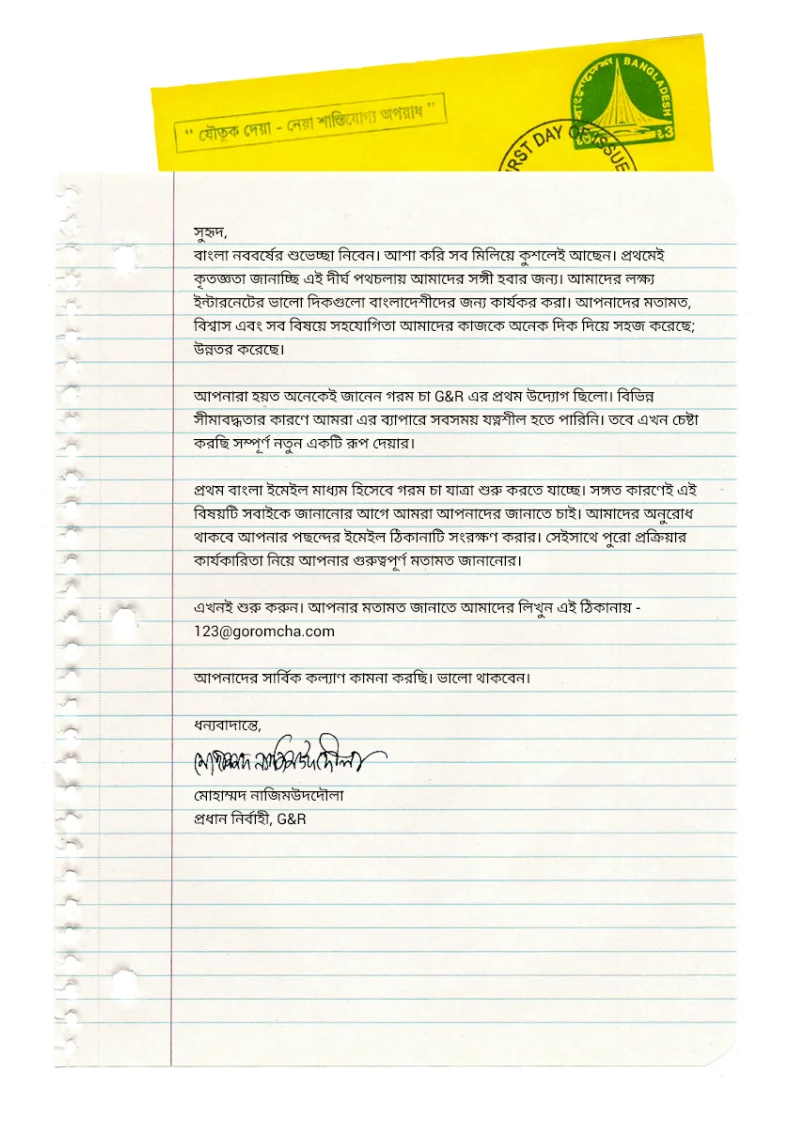 “ যৌতুক দেয়া - নেয়া শাস্তিযোগ্য অপরাধ ”
বাংলাদেশ BANGLADESH
৳3
FIRST DAY OF ISSUE
সুহৃদ,
বাংলা নববর্ষের শুভেচ্ছা নিবেন। আশা করি সব মিলিয়ে কুশলেই আছেন। প্রথমেই
কৃতজ্ঞতা জানাচ্ছি এই দীর্ঘ পথচলায় আমাদের সঙ্গী হবার জন্য। আমাদের লক্ষ্য
ইন্টারনেটের ভালো দিকগুলো বাংলাদেশীদের জন্য কার্যকর করা। আপনাদের মতামত,
বিশ্বাস এবং সব বিষয়ে সহযোগিতা আমাদের কাজকে অনেক দিক দিয়ে সহজ করেছে;
উন্নতর করেছে।
আপনারা হয়ত অনেকেই জানেন গরম চা G&R এর প্রথম উদ্যোগ ছিলো। বিভিন্ন
সীমাবদ্ধতার কারণে আমরা এর ব্যাপারে সবসময় যত্নশীল হতে পারিনি। তবে এখন চেষ্টা
করছি সম্পূর্ণ নতুন একটি রূপ দেয়ার।
প্রথম বাংলা ইমেইল মাধ্যম হিসেবে গরম চা যাত্রা শুরু করতে যাচ্ছে। সঙ্গত কারণেই এই
বিষয়টি সবাইকে জানানোর আগে আমরা আপনাদের জানাতে চাই। আমাদের অনুরোধ
থাকবে আপনার পছন্দের ইমেইল ঠিকানাটি সংরক্ষণ করার। সেইসাথে পুরো প্রক্রিয়ার
কার্যকারিতা নিয়ে আপনার গুরুত্বপূর্ণ মতামত জানানোর।
এখনই শুরু করুন। আপনার মতামত জানাতে আমাদের লিখুন এই ঠিকানায় -
123@goromcha.com
আপনাদের সার্বিক কল্যাণ কামনা করছি। ভালো থাকবেন।
ধন্যবাদান্তে,
মোহাম্মদ নাজিমউদদৌলা
মোহাম্মদ নাজিমউদদৌলা
প্রধান নির্বাহী, G&R